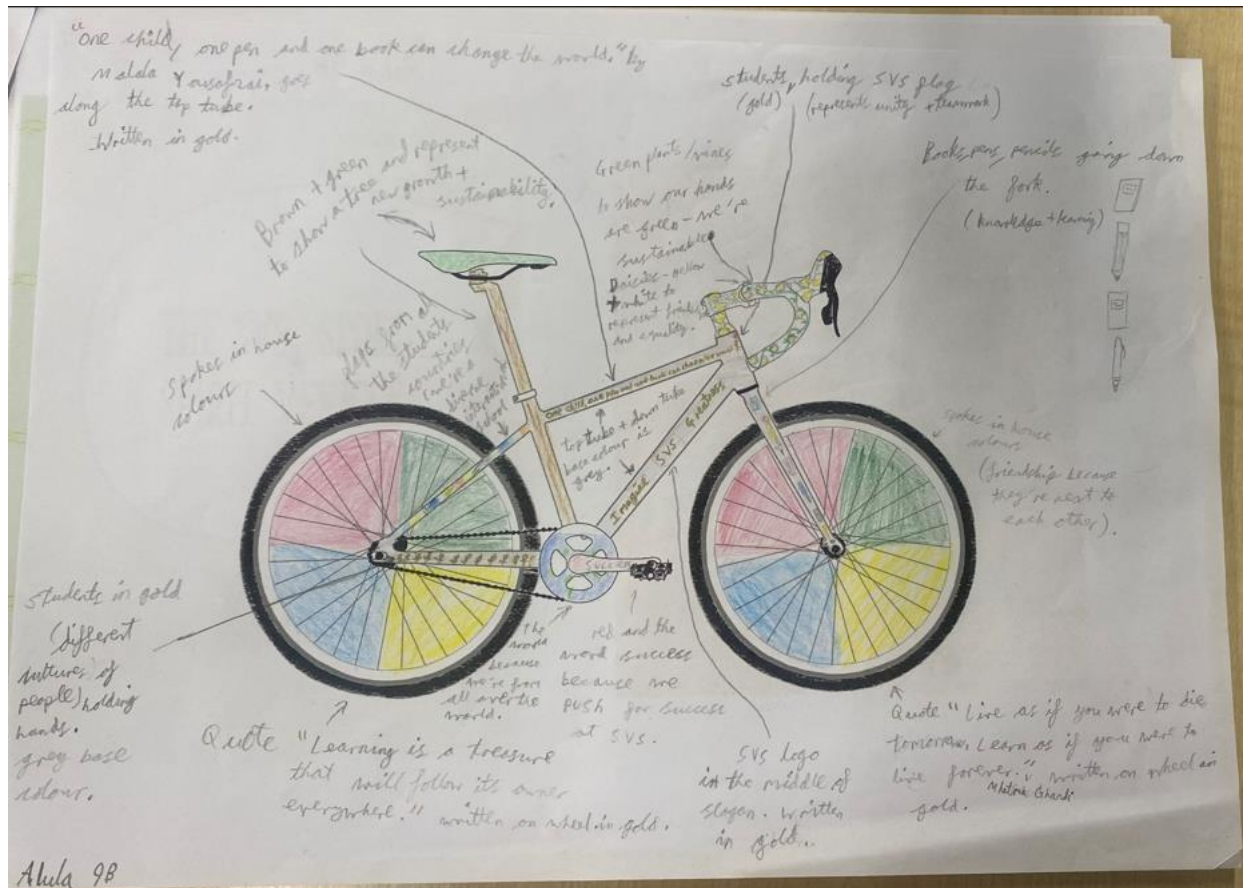 "One child, one pen and one book can change the world." by
Malala Yousafzai, goes
along the top tube.
Written in gold.
students, holding SVS flag
(gold) (represents unity + teamwork)
Books, pens, pencils going down
the fork.
(knowledge + learning)
Brown + green
to show a tree and represent
new growth +
sustainability.
Green plants/vines
to show our hands
are green - we're
sustainable
Daisies - yellow
+ white to
represent
and equality.
spokes in house
colours
flags from all
the students
countries
(we're a
diverse
school
One child one pen and one book can change the world
top tube + down tube
base colour is
grey.
Imagine SVS Greatness
spokes in house
colours
(friendship because
they're next to
each other).
students in gold
(different
cultures of
people) holding
hands.
grey base
colour.
The
world
because
we're from
all over the
world.
red and the
word success
because we
push for success
at SVS.
Quote "Learning is a treasure
that will follow its owner
everywhere." written on wheel in gold.
SVS logo
in the middle of
slogan. written
in gold.
Quote "Live as if you were to die
tomorrow. Learn as if you were to
live forever." written on wheel in
gold.
Alula 9B